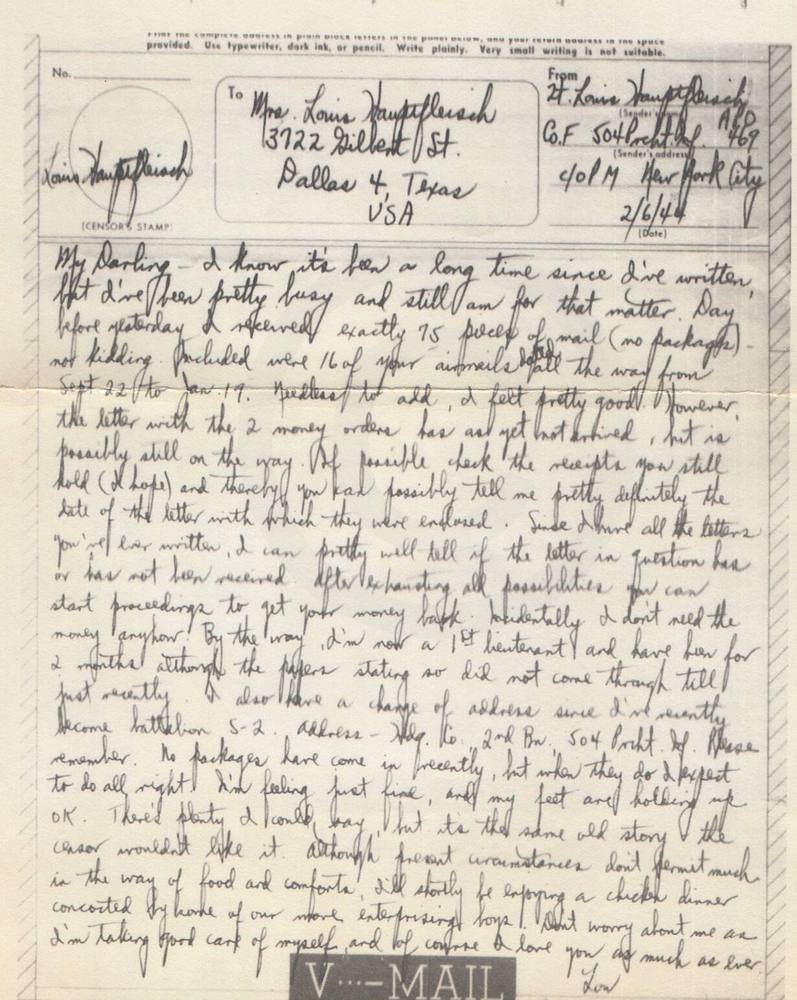 Print the complete address in plain block letters in the panel below, and your return address in the space
provided. Use typewriter, dark ink, or pencil. Write plainly. Very small writing is not suitable.
No.
To
From
Mrs. Louis Hauptfleisch
3722 Gilbert St.
Dallas 4, Texas
USA
Lt. Louis Hauptfleisch
(Sender's name)
Co. F 504 Prcht. Inf. APO 469
(Sender's address)
c/o PM New York City
2/6/44
(Date)
Louis Hauptfleisch
(CENSOR'S STAMP)
My Darling – I know it's been a long time since I've written,
but I've been pretty busy and still am for that matter. Day
before yesterday I received exactly 75 pieces of mail (no packages) –
not kidding. Included were 16 of your airmails dated all the way from
Sept. 22 to Jan. 19. Needless to add, I felt pretty good. However,
the letter with the 2 money orders has as yet not arrived, but is
possibly still on the way. If possible check the receipts you still
hold (I hope) and thereby you can possibly tell me pretty definitely the
date of the letter with which they were enclosed. Since I have all the letters
you've ever written, I can pretty well tell if the letter in question has
or has not been received. After exhausting all possibilities you can
start proceedings to get your money back. Incidentally I don't need the
money anyhow. By the way, I'm now a 1st lieutenant and have been for
2 months although the papers stating so did not come through till
just recently. I also have a change of address since I've recently
become battalion S-2. Address – Hdq. Co., 2nd Bn., 504 Prcht. Inf. Please
remember. No packages have come in recently, but when they do I expect
to do all right. I'm feeling just fine, and my feet are holding up
OK. There's plenty I could say, but it's the same old story & the
censor wouldn't like it. Although present circumstances don't permit much
in the way of food and comforts, I'll shortly be enjoying a chicken dinner
concocted by some of our more enterprising boys. Don't worry about me as
I'm taking good care of myself, and of course I love you as much as ever.
Lou
V···–MAIL